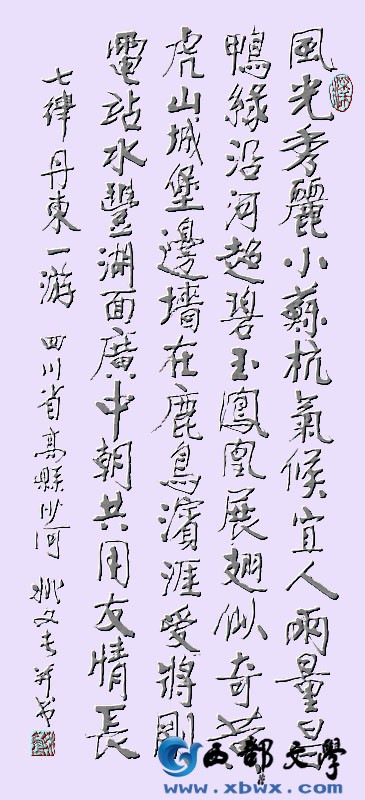 風光秀麗小蘇杭氣候宜人雨量昌
鴨緣沿河超碧玉鳳凰展翅似奇黃
虎山城堡邊墻在鹿島濱涯愛將剛
電站水豐湖面廣中朝共用友情長
七律 丹東一游 四川省高縣沙河 姚文長并书
西部文學
www.xbwx.com